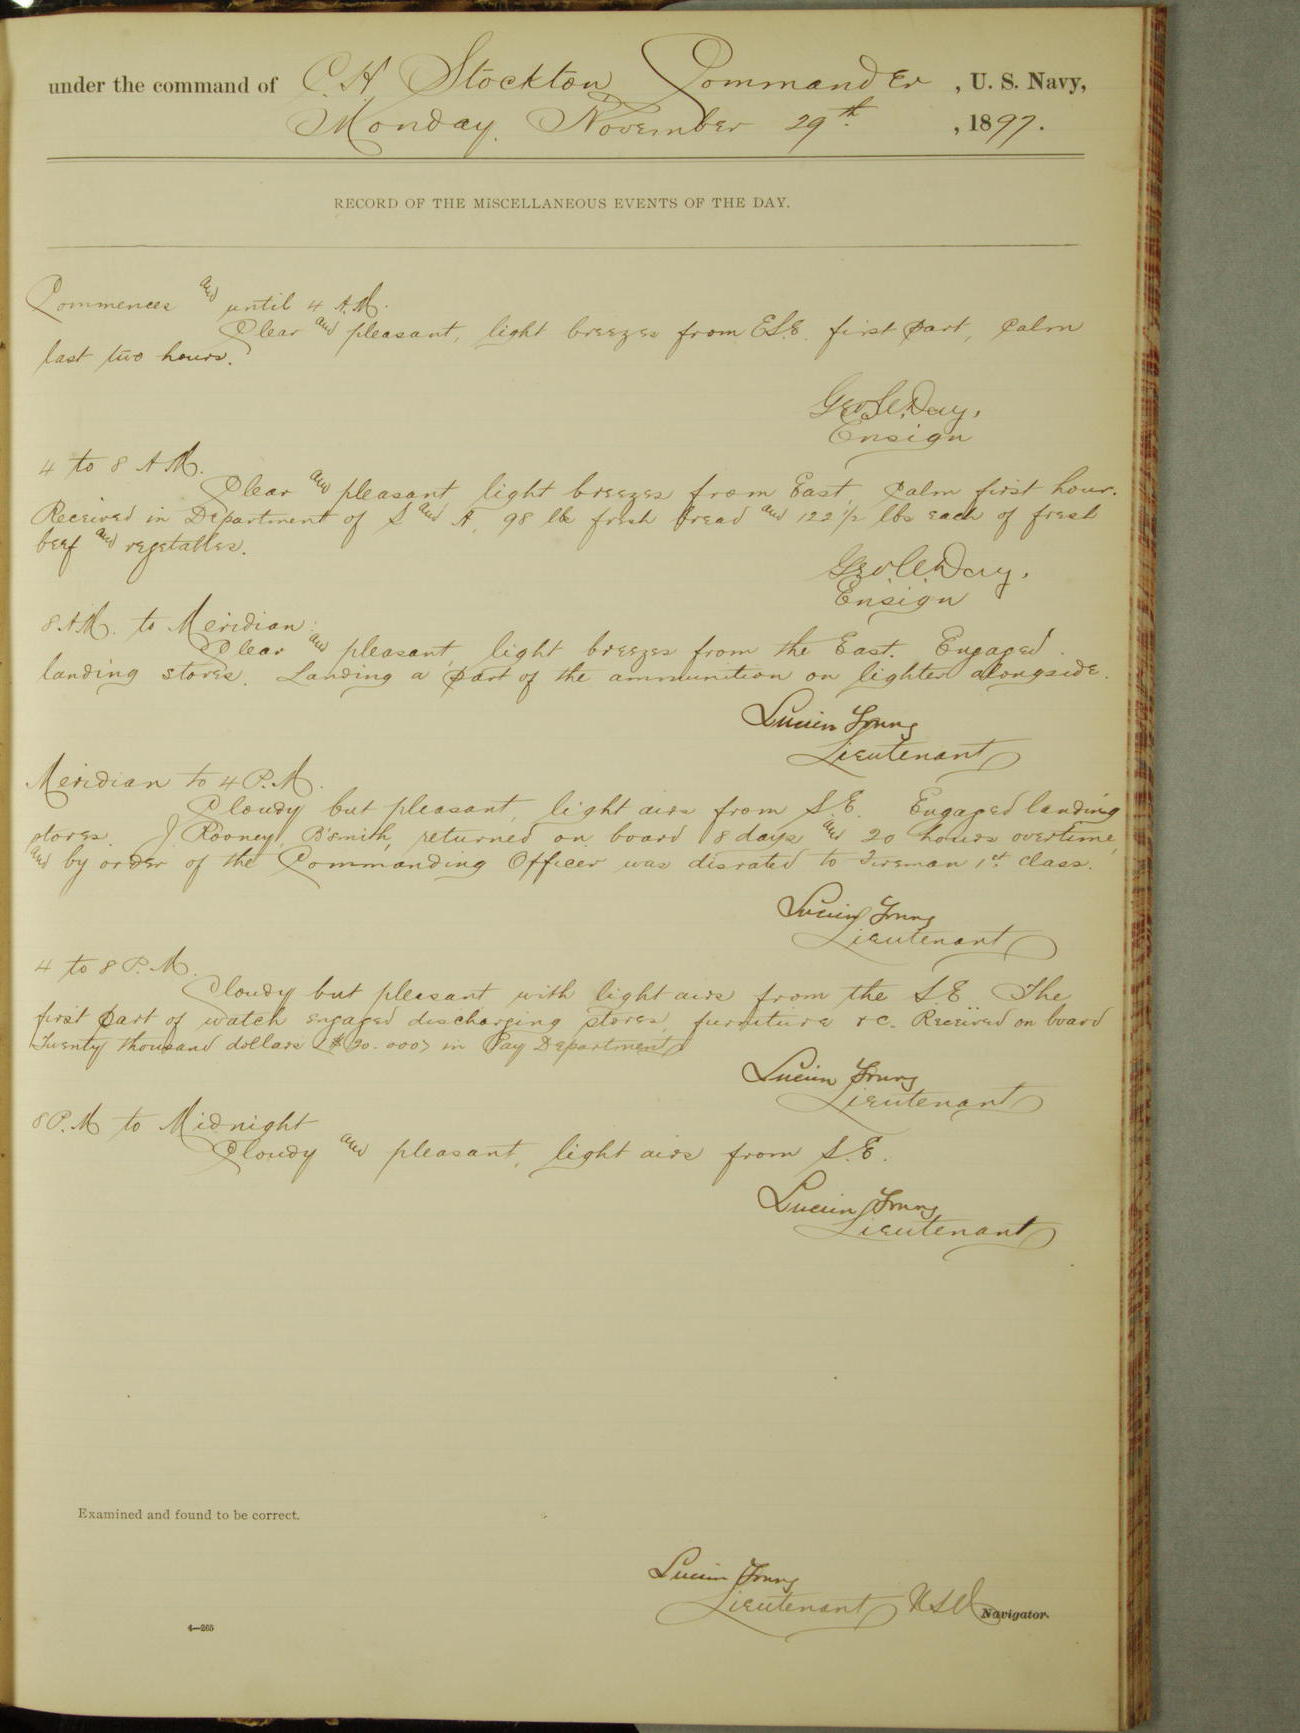 under the command of C. H. Stockton Commander, U. S. Navy,
Monday, November 29th, 1897.
RECORD OF THE MISCELLANEOUS EVENTS OF THE DAY.
Commences and until 4 A.M.
Clear and pleasant, light breezes from ESE. first part, calm
last two hours.
Geo. C. Day,
Ensign
4 to 8 A.M.
Clear and pleasant, light breezes from East, calm first hour.
Received in Department of S and A, 98 lbs fresh bread and 122 1/2 lbs each of fresh
beef and vegetables.
Geo. C. Day,
Ensign
8 A.M. to Meridian:
Clear and pleasant, light breezes from the East. Engaged
landing stores. Landing a part of the ammunition on lighter alongside.
Lucien Young
Lieutenant
Meridian to 4 P.M.
Cloudy but pleasant, light airs from S.E. Engaged landing
stores. J Rooney, B'smith, returned on board 8 days and 20 hours overtime,
and by order of the Commanding Officer was disrated to Fireman 1st class.
Lucien Young
Lieutenant
4 to 8 P.M.
Cloudy but pleasant with light airs from the S.E. The
first part of watch engaged discharging stores, furniture &c. Received on board
Twenty thousand dollars ($20.000) in Pay Department
Lucien Young
Lieutenant
8 P.M. to Midnight
Cloudy and pleasant, light airs from S.E.
Lucien Young
Lieutenant
Examined and found to be correct.
Lucien Young
Lieutenant USN
Navigator.
4—265